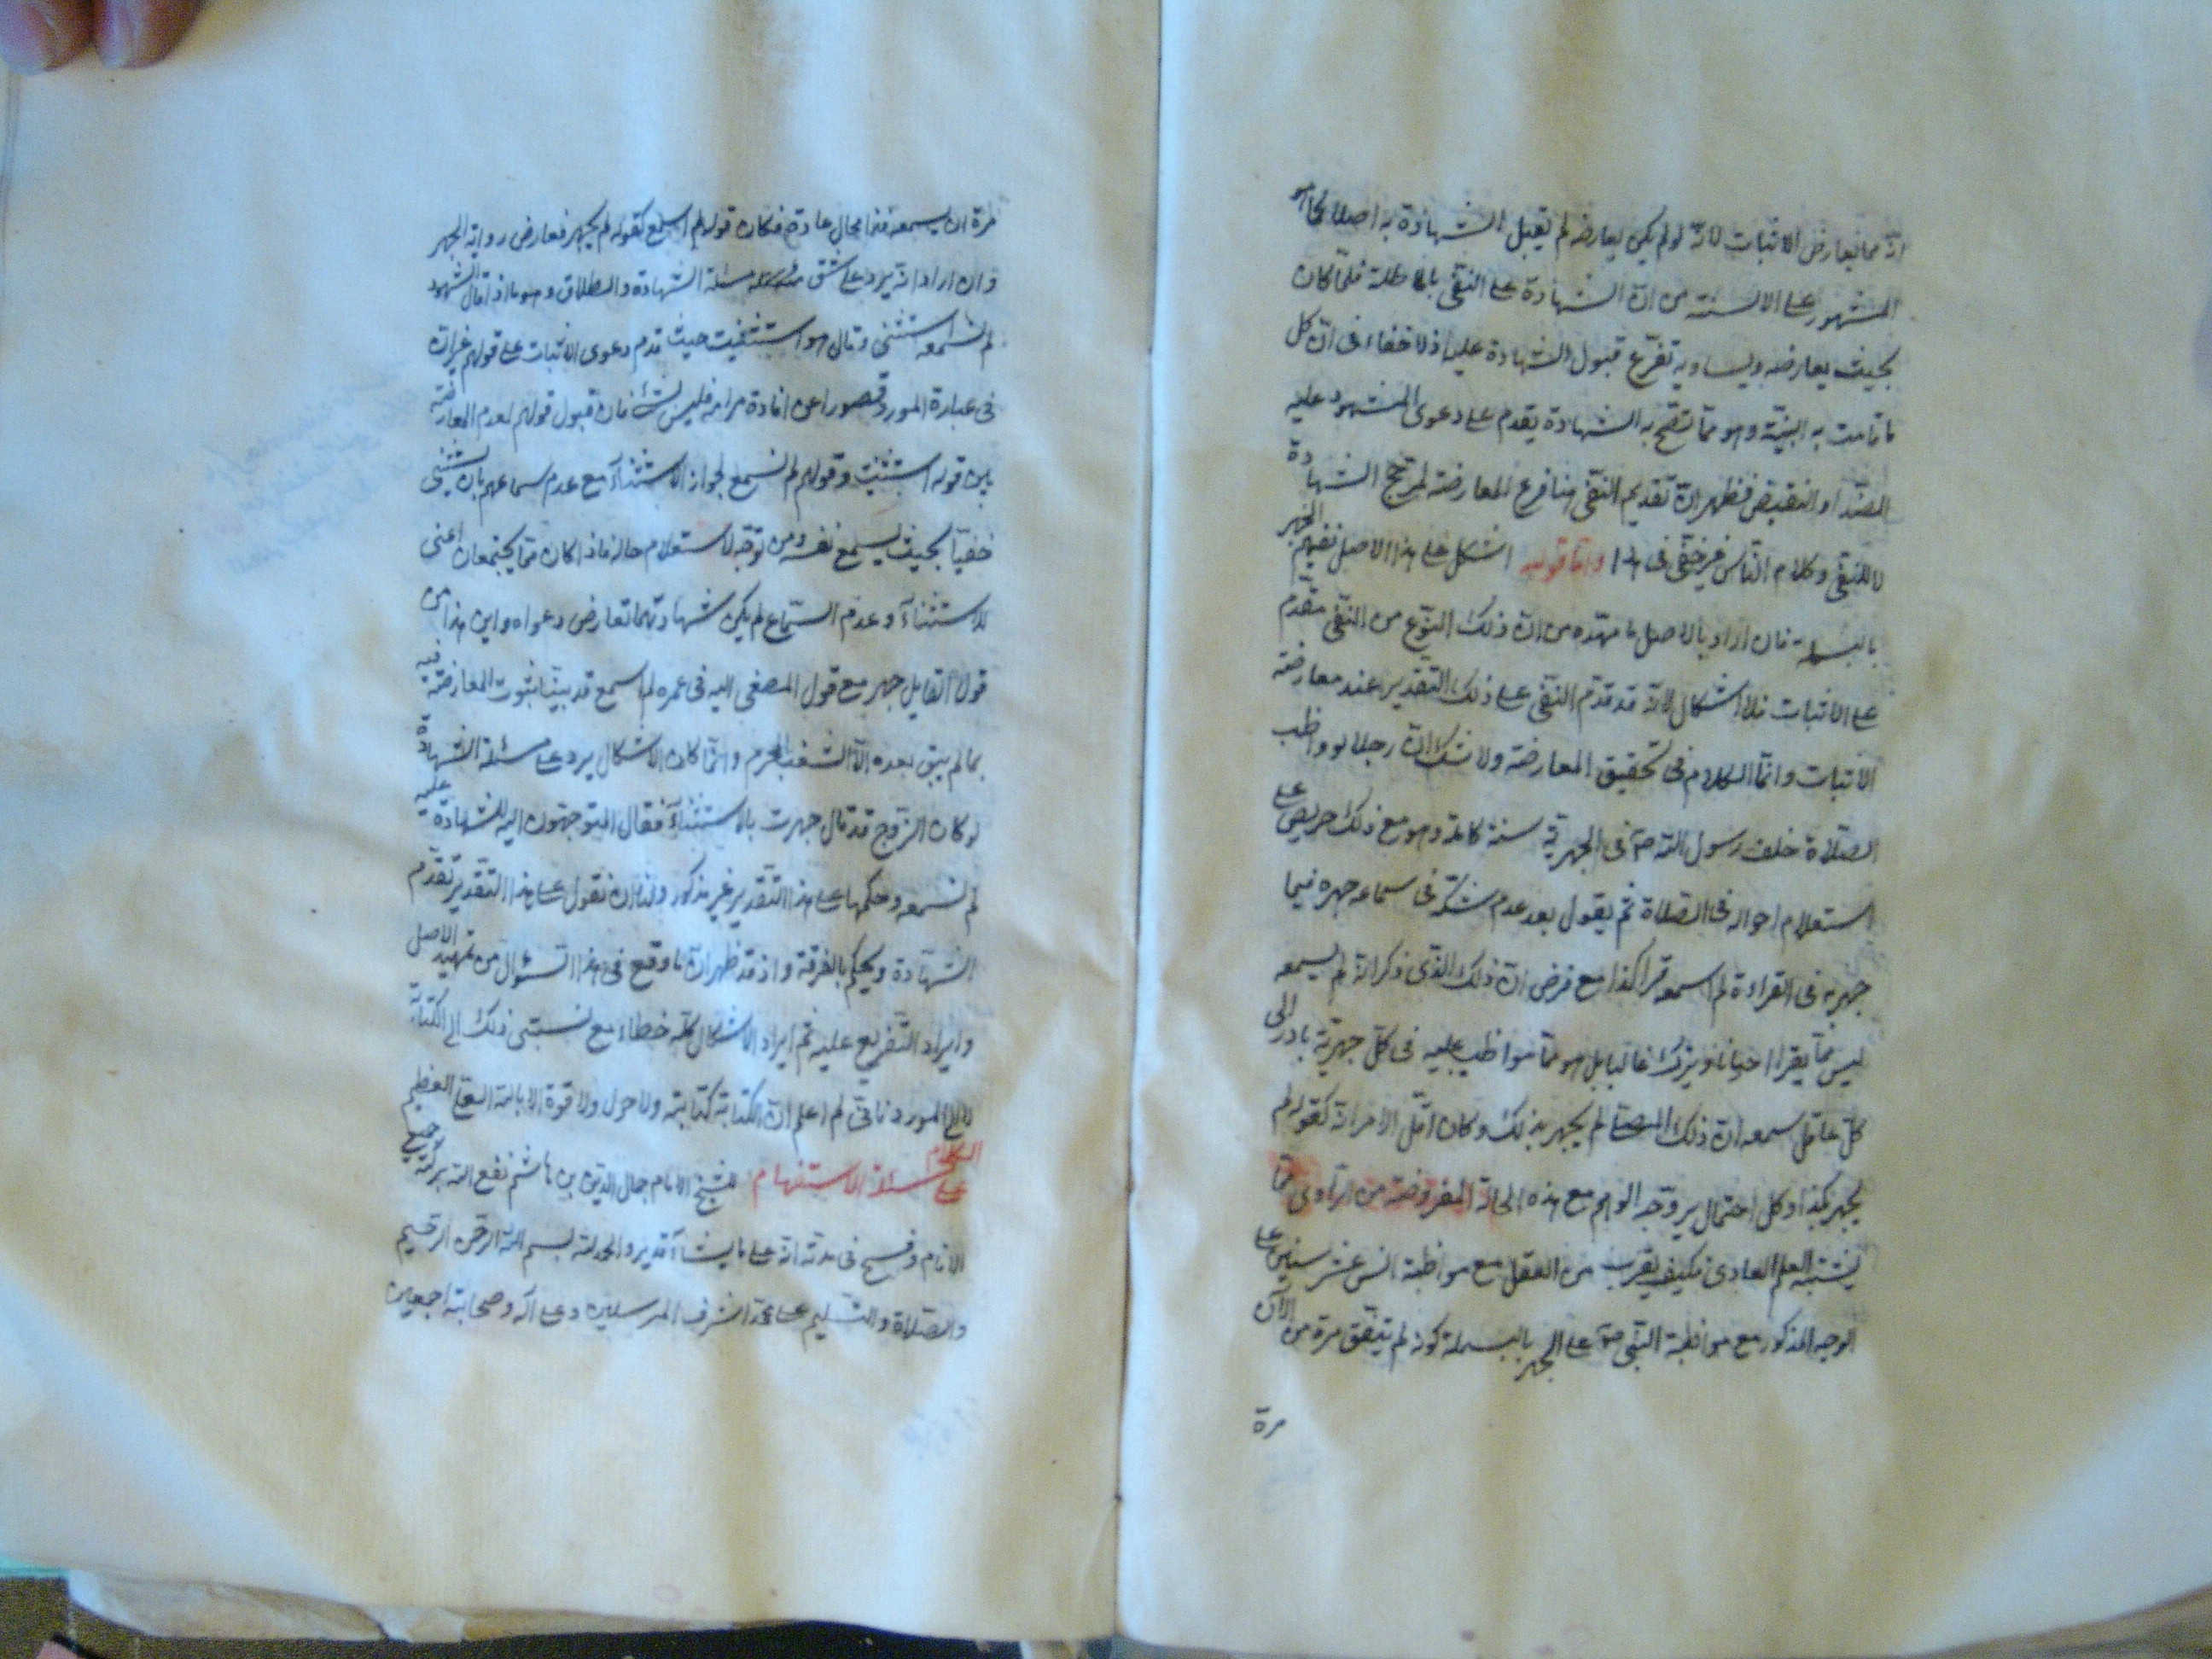 انه مما يعارض الاثبات لانه لو لم يكن يعارضه لم تقبل الشهادة به اصلا كما هو
المشهور على الالسنة من ان الشهادة على النفى باطلة فلما كان
بحيث يعارضه ويساويه تفرع قبول الشهادة عليه اذ لا خفاء فى ان كل
ما قامت به البينة وهو مما تصح به الشهادة يقدم على دعوى المشهود عليه
الضد او النقيض فظهر ان تقديم النفى هنا فرع المعارضة لترجح الشهادة
لا للنفى وكلام الناس غير خفى فى هذا واما قوله اشكل على هذا الاصل نفيهم الجهر
بالبسملة فان اراد بالاصل ما مهده من ان ذلك النوع من النفى مقدم
على الاثبات فلا اشكال لانه قد قدم النفى على ذلك التقدير عند معارضته
الاثبات وانما الكلام فى تحقيق المعارضة ولا شك ان رجلا لو واظب
الصلاة خلف رسول الله صم فى الجهرية سنة كاملة وهو مع ذلك حريص على
استعلام احواله فى الصلاة ثم يقول بعد عدم شكه فى سماعه جهره فيما
جهر به فى القراءة لم اسمعه قرأ كذا مع فرض ان ذلك الذى ذكر انه لم يسمعه
ليس مما يقرأ احيانا ويترك غالبا بل هو مما مواظب عليه فى كل جهرية بادر الى
كل عاقل سمعه ان ذلك لم يجهر بذلك وكان اقل الامر انه كقوله لم
يجهر بكذا وكل احتمال يروجه الوهم مع هذه الحالة المفروضة من اتراوى مما
يشتبه العلم العادى فكيف يقرب من العقل مع مواظبة انس عشر سنين على
الوجه المذكور مع مواظبة النبى صم على الجهر بالبسملة كونه لم يتفق مرة من الآن
مرة
مرة ان يسمعه هذا محال عادة فكان قوله لم اسمع كقوله لم يجهر فعارض رواية الجهر
وان اراد انه يرد على شق مسئلة الشهادة والطلاق وهو ما اذا قال الشهود
لم نسمعه استثنى وقال هو استثنيت حيث قدم دعوى الاثبات على قولهم غير ان
فى عبارة المورد قصورا عن افادة مرامه فليس بشئ فان قبول قوله لعدم المعارضة
بين قوله استثنيت وقولهم لم نسمع لجواز الاستثناء مع عدم سماعهم بان يستثنى
خفيا بحيث يسمع نفسه ومن توجه لاستعلام حاله فاذا كان مما يجتمعان اعنى
الاستثناء وعدم السماع لم يكن شهادتهما تعارض دعواه واين هذا من
قول القايل جهر مع قول المصغى اليه فى عمره لم اسمع قد بينا ثبوت المعارضة فيه
بما لم يبق بعده الا الشغب المحرم وانما كان الاشكال يرد على مسئلة الشهادة
لو كان الزوج قد قال جهرت بالاستثناء فقال المتوجهون اليه للشهادة عليه
لم نسمعه وحكمها على هذا التقدير غير مذكور ولنا ان نقول على هذا التقدير تقدم
الشهادة ويحكم بالفرقة واذ قد ظهر ان ما وقع فى هذا السؤال من تمهيد الاصل
وايراد التفريع عليه ثم ايراد الاشكال كله خطاء مع نسبتى ذلك الى الكتابة
لا الى المورد فانى لم اعلم ان الكتابة كتابته ولا حول ولا قوة الا بالله العلى العظيم
الكلام على مسئلة الاستفهام للشيخ الامام جمال الدين بن هاشم نفع الله ببركته جميع
الانام وفسح فى مدته انه على ما يشاء قدير والحمد لله بسم الله الرحمن الرحيم
والصلاة والتسليم على محمد اشرف المرسلين وعلى اله وصحابته اجمعين